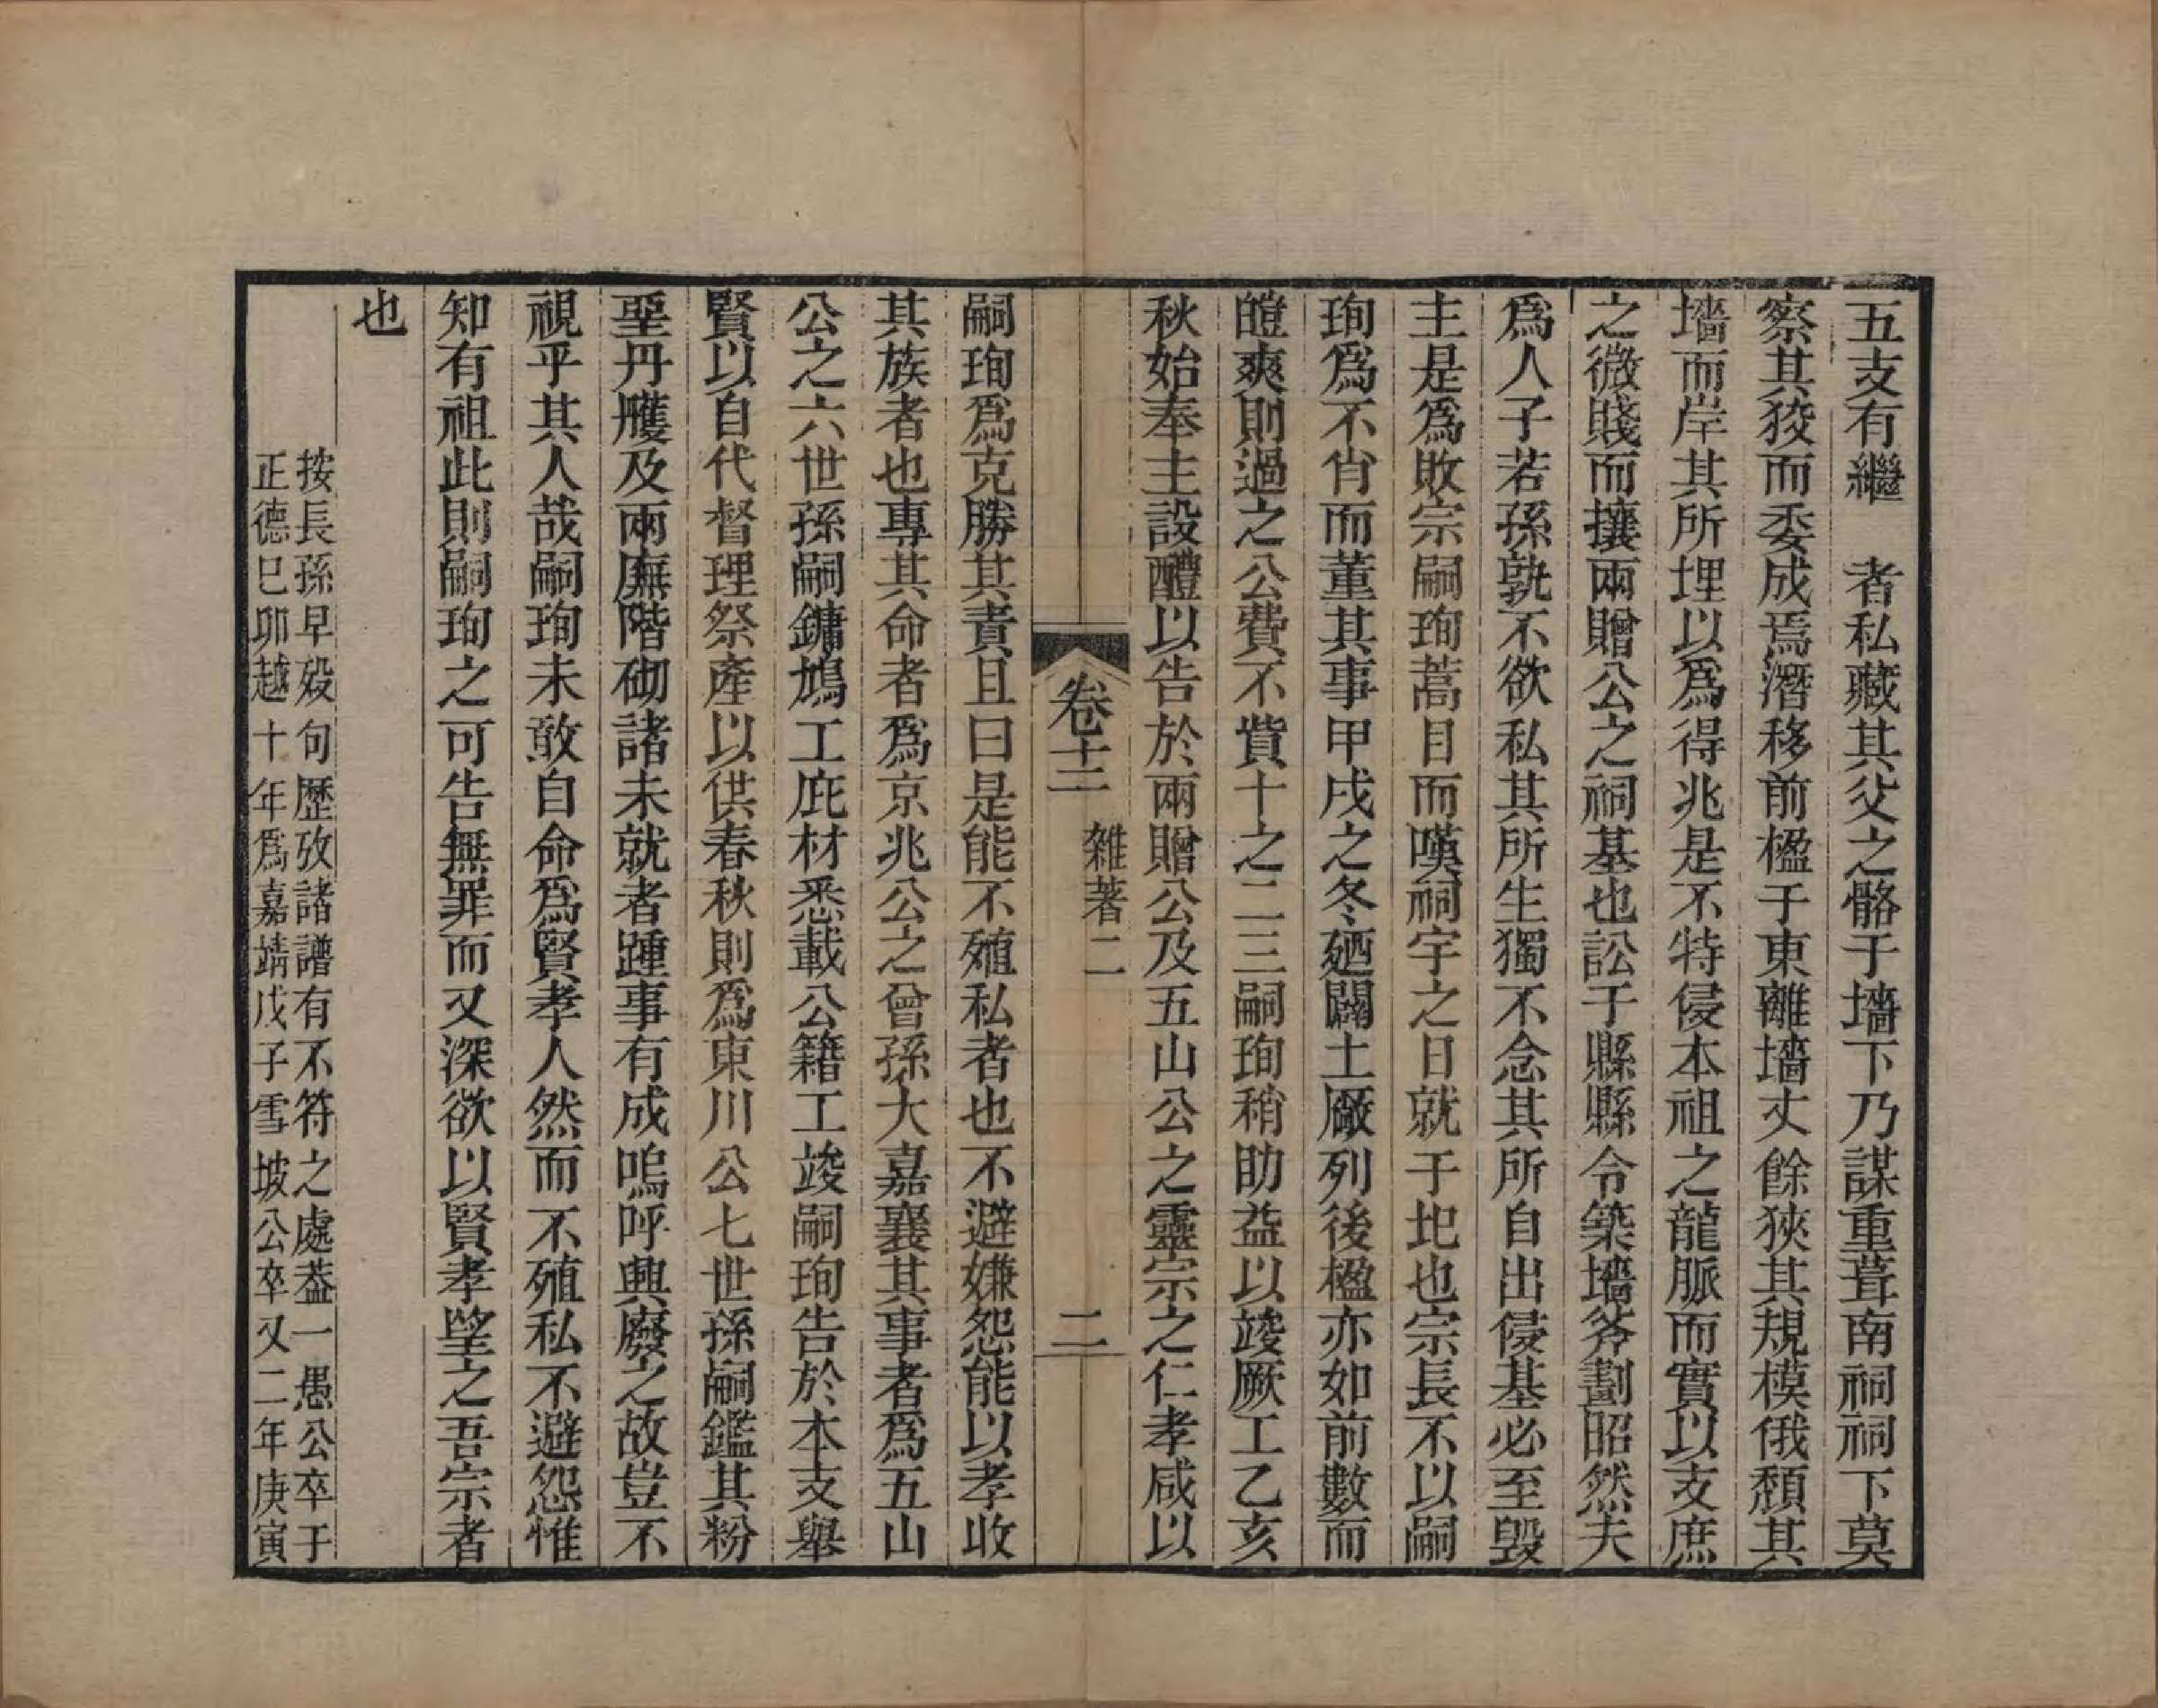 五支有繼　者私藏其父之骼于墻下乃謀重葺南祠祠下莫
察其狡而委成焉潛移前楹于東離墻丈餘狹其規模俄頹其
墻而岸其所埋以爲得兆是不特侵本祖之龍脈而實以支庶
之微賤而攘兩贈公之祠基也訟于縣縣令築墻斧劃昭然夫
爲人子若孫孰不欲私其所生獨不念其所自出侵基必至毀
主是爲敗宗嗣珣蒿目而嘆祠宇之日就于圯也宗長不以嗣
珣爲不肖而董其事甲戌之冬廼闢土厰列後楹亦如前數而
皚爽則過之公費不貲十之二三嗣珣稍助益以竣厥工乙亥
秋始奉主設醴以告於兩贈公及五山公之靈宗之仁孝咸以
卷十二　雜著二　二
嗣珣爲克勝其責且曰是能不殖私者也不避嫌怨能以孝收
其族者也專其命者爲京兆公之曾孫大嘉襄其事者爲五山
公之六世孫嗣鏞鳩工庀材悉載公籍工竣嗣珣告於本支舉
賢以自代督理祭產以供春秋則爲東川公七世孫嗣鑑其粉
堊丹雘及兩廡階砌諸未就者踵事有成嗚呼興廢之故豈不
視乎其人哉嗣珣未敢自命爲賢孝人然而不殖私不避怨惟
知有祖此則嗣珣之可告無罪而又深欲以賢孝望之吾宗者
也
按長孫早歿句歷攷諸譜有不符之處葢一愚公卒于
正德巳卯越十年爲嘉靖戊子雪坡公卒又二年庚寅